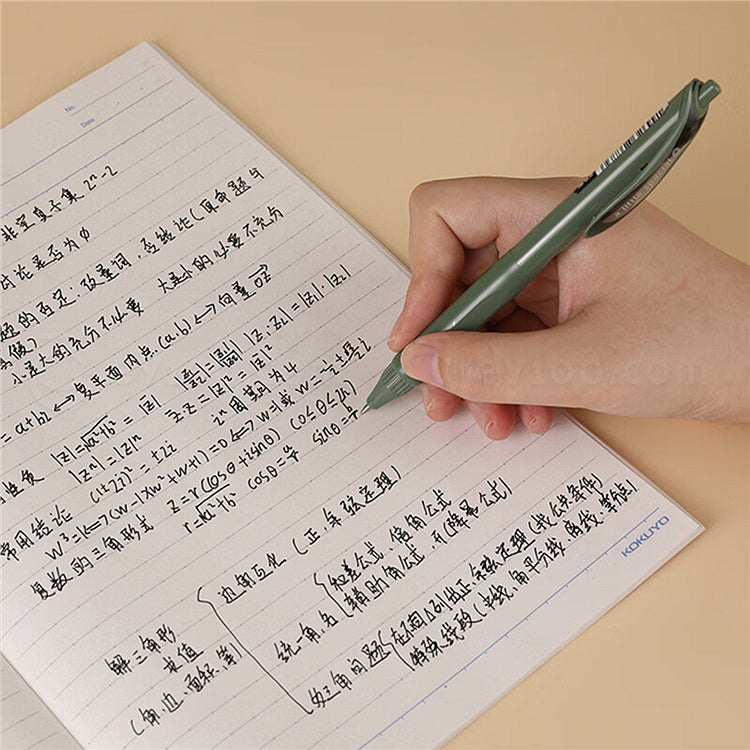 No.
Date
非空真子集 2ⁿ-2
讨论是否为∅
题的否定:改量词,否结论(原命题与
真假)
小是大的充分不必要 大是小的必要不充分
=a+bi ↔ 复平面内点(a.b) ↔ 向量OZ
|z|=√a²+b²=|z̄| |z₁/z₂|=|z₁|/|z₂| |z₁·z₂|=|z₁|·|z₂|
|zⁿ|=|z|ⁿ z·z̄=|z|²=|z̄|²
常用结论 (1±i)²=±2i iⁿ周期为4
w³=1 ↔ (w-1)(w²+w+1)=0 ↔ w=1或w=-1/2±√3/2 i
复数的三角形式 z=r(cosθ+isinθ) (0≤θ≤2π)
r=√a²+b² cosθ=a/r sinθ=
解三角形
求值
(角、边、面积、等)
边角互化(正、余弦定理)
统一角、名
和差公式、倍角公式
辅助角公式、(降幂公式)
多三角问题
在不同△分别用正、余弦定理(找公共条件)
特殊线段(中线、角平分线、高线、等分点)
KOKUYO